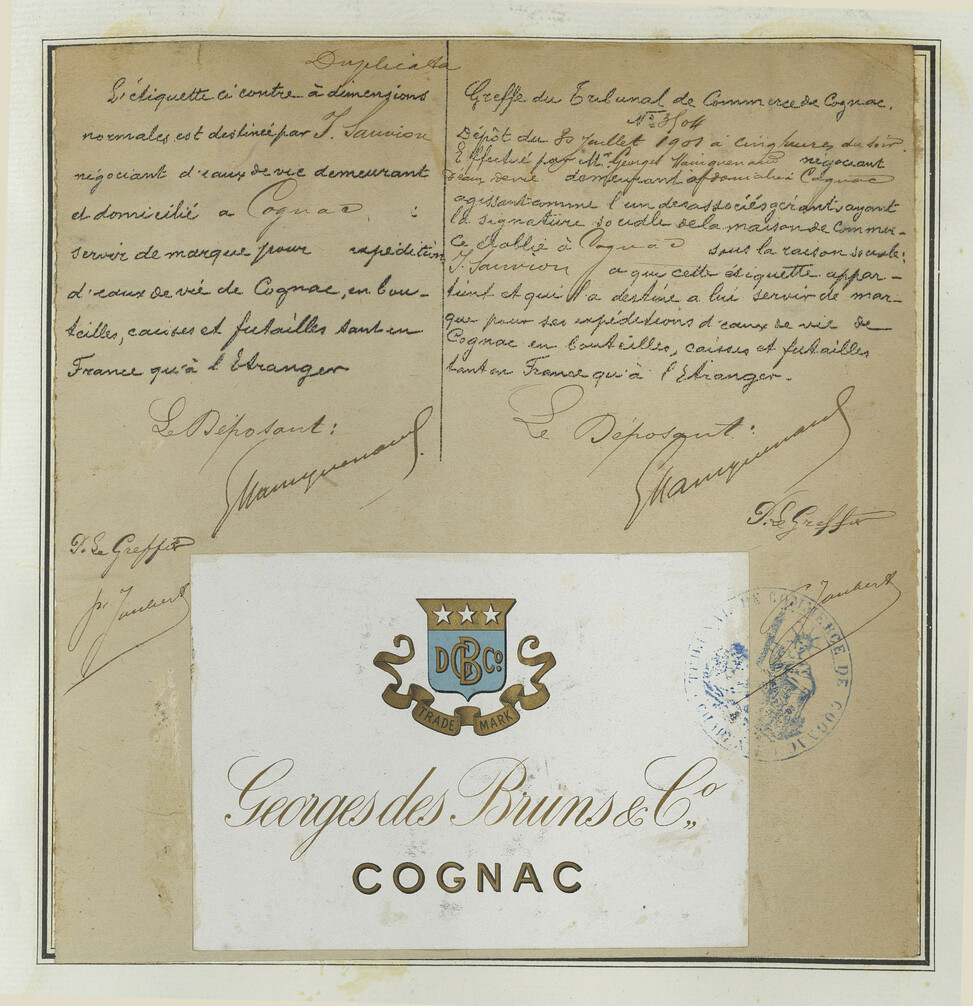 Duplicata
L'étiquette ci contre à dimensions
normales est destinée par J. Sauvion
négociant d'eaux de vie demeurant
et domicilié a Cognac, :
servir de marque pour expédition
d'eaux de vie de Cognac, en bou-
teilles, caisses et futailles tant en
France qu'à l'Etranger
Le Déposant:
GMauquenaud.
P. Le Greffier
Joubert
Greffe du Tribunal de Commerce de Cognac.
No 3504
Dépôt du 30 Juillet 1901 à cinq heures du soir
Effectué par Mr. Georges Mauquenaud négociant
d'eaux de vie demeurant et domicilié Cognac
agissant comme l'un des associés gérants, ayant
la signature sociale de la maison de Commer-
ce établie à Cognac sous la raison sociale:
J. Sauvion a que cette étiquette appar-
tient et qu'il l'a destine a lui servir de mar-
que pour ses expéditions d'eaux de vie de
Cognac en bouteilles, caisses et futailles
tant en France qu'à l'Etranger.
Le Déposant:
GMauquenaud
P. Le Greffier
Joubert
TRIBUNAL DE COMMERCE DE COGNAC
DCBCo
TRADE MARK
Georges des Bruns & Co.,
COGNAC